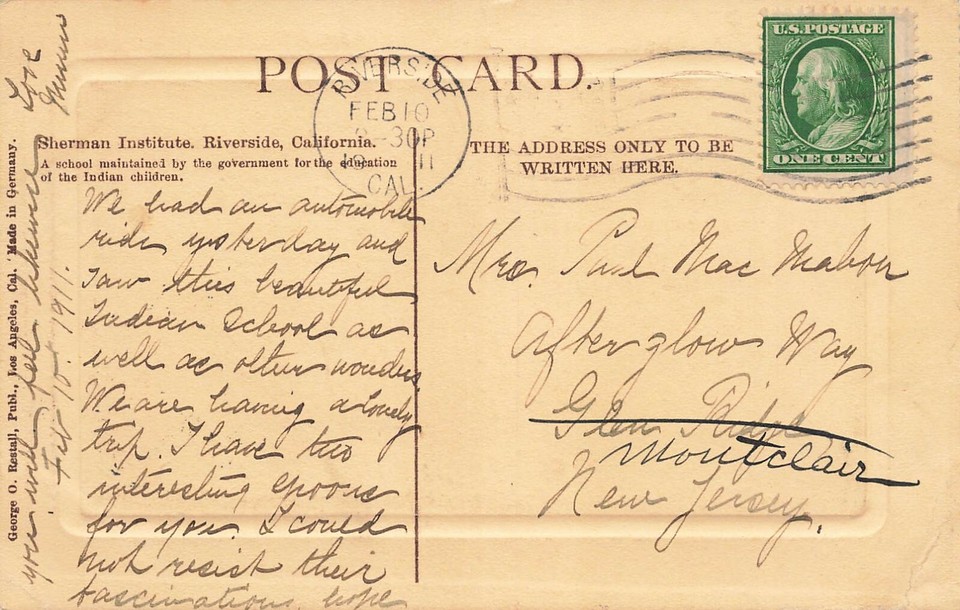 POST CARD.
U.S. POSTAGE
ONE CENT
RIVERSIDE
FEB 10
3-30P
1911
CAL.
Sherman Institute. Riverside, California.
A school maintained by the government for the education
of the Indian children.
THE ADDRESS ONLY TO BE
WRITTEN HERE.
We had an automobile
ride yesterday and
saw this beautiful
Indian School as
well as other wonders.
We are having a lovely
trip. I have two
interesting spoons
for you. I could
not resist their
fascinations, hope
you will feel likewise
Love
Feb 10. 1911.
Mrs. Paul Mac Mahon
Afterglow Way
Glen Ridge
Montclair
New Jersey.
George O. Restall, Publ., Los Angeles, Cal. Made in Germany.